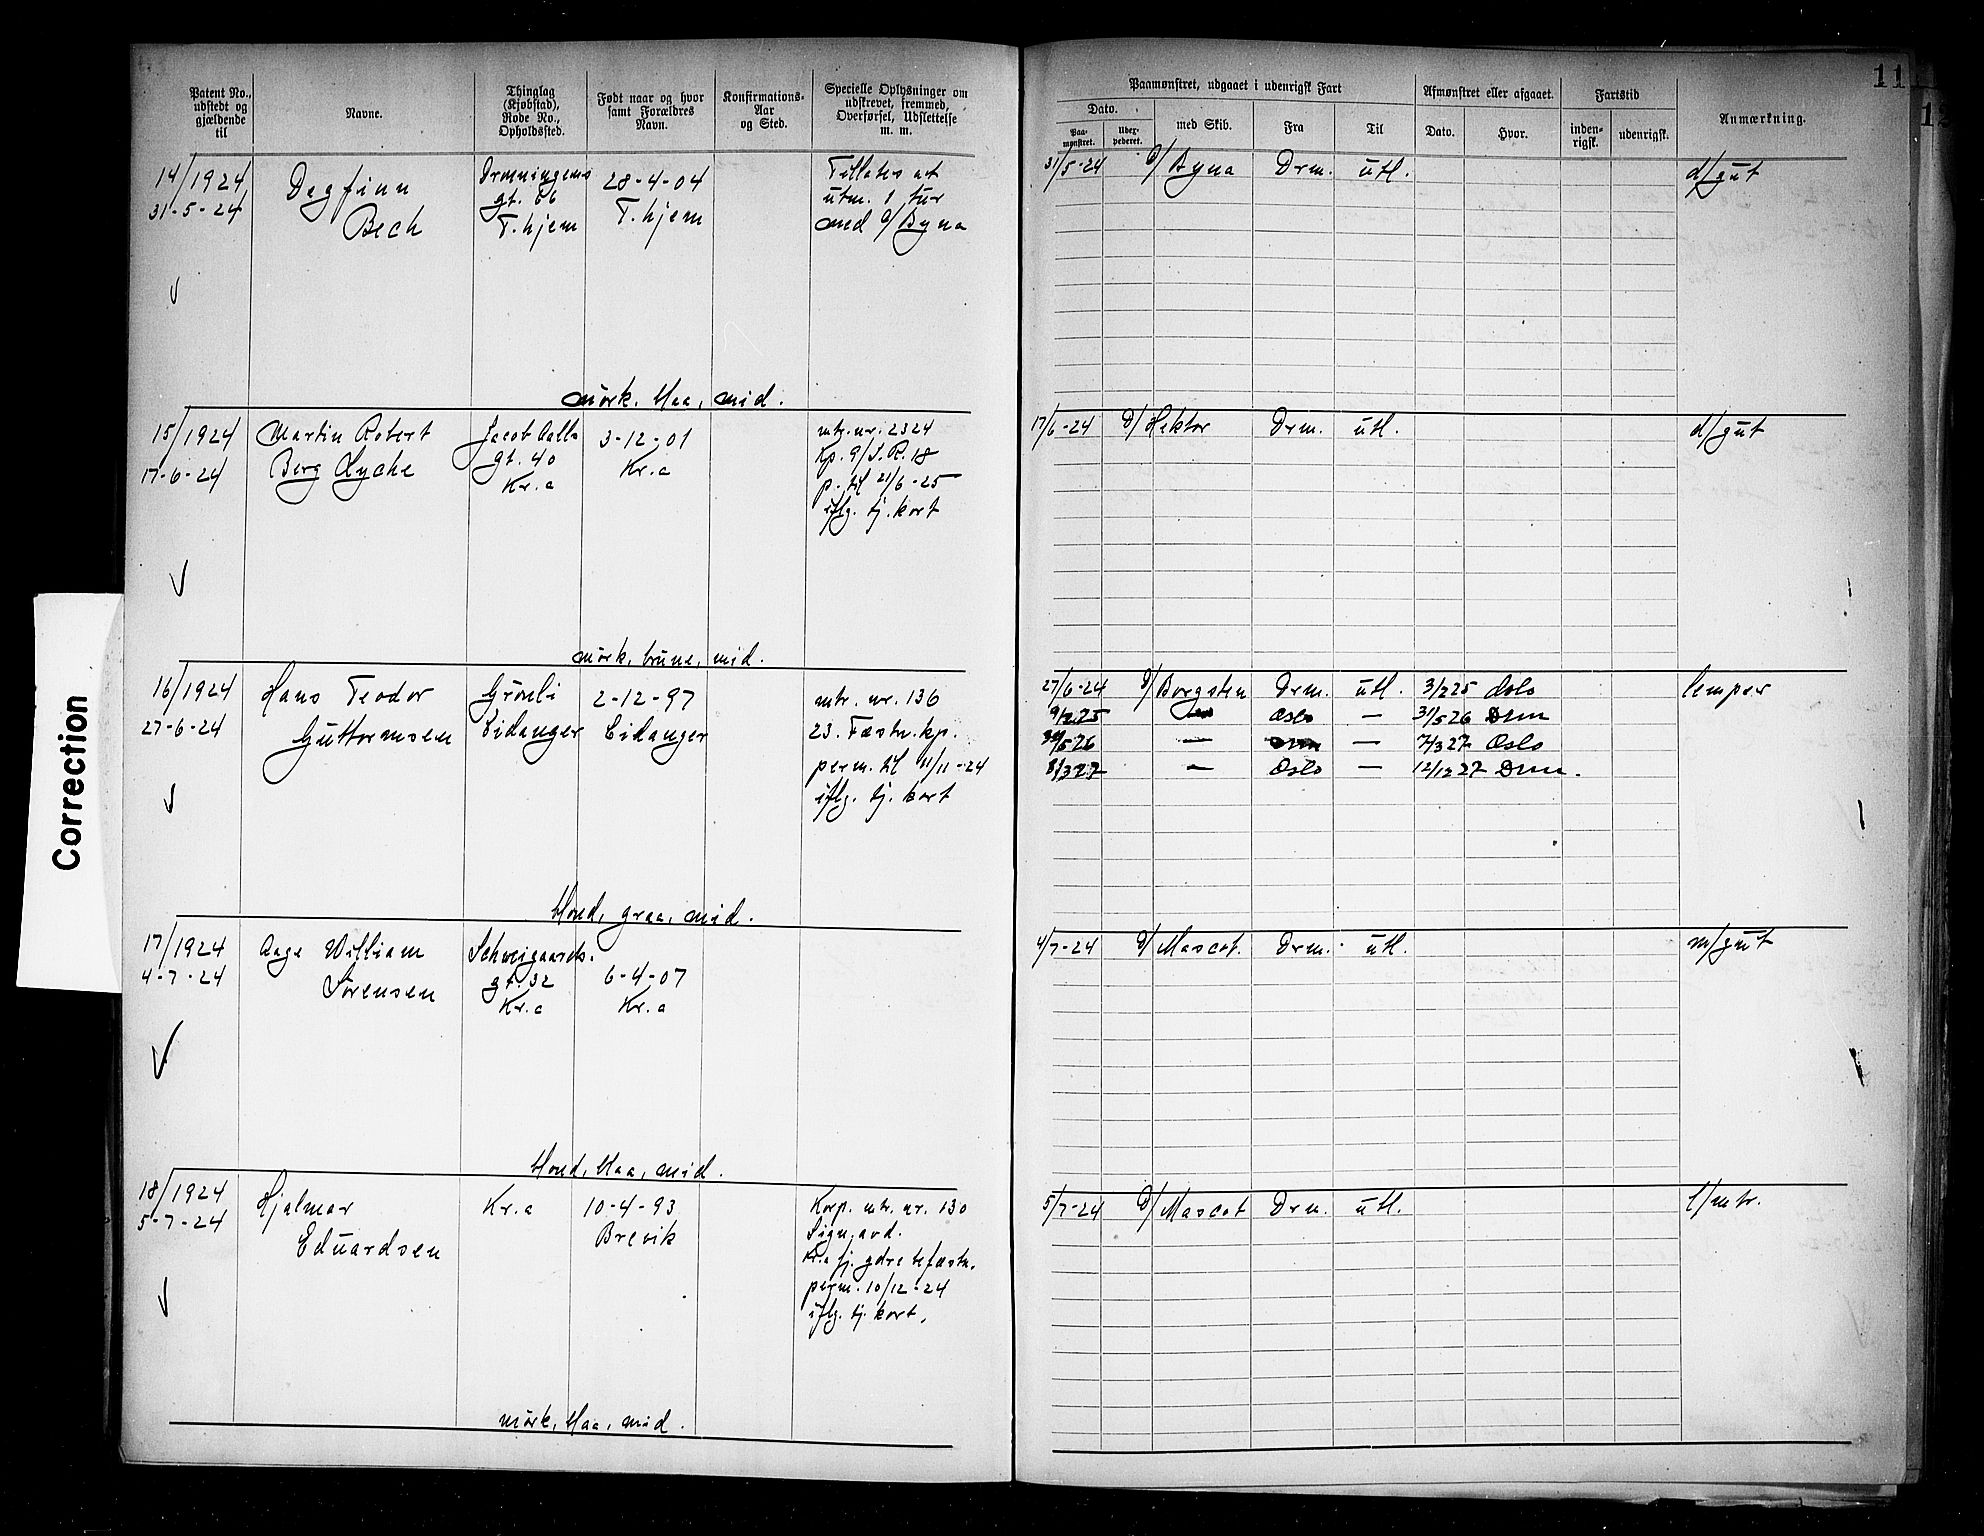 Patent No.,
udstedt og
gjældende
til
Navne.
Thinglag
(Kjøbstad),
Rode No.,
Opholdssted.
Født naar og hvor
samt Forældres
Navn.
Konfirmations-
Aar
og Sted.
Specielle Oplysninger om
udskrevet, fremmed,
Overførsel, Udslettelse
m. m.
14/1924
31-5-24
Dagfinn
Bech
Dronningens
gt. 66
T.hjem
28-4-04
T.hjem
Tillates at
utm. 1 tur
med D/Byna
mørk. blaa, mid.
15/1924
17-6-24
Martin Robert
Berg Lyche
Jacob Aalls
gt. 40
Kr.a
3-12-01
Kr.a
mtr. nr. 2324
Kp. 9/I.R. 18
p. til 21/6-25
iflg. tj. kort
mørk, brune, mid.
16/1924
27-6-24
Hans Teodor
Guttormsen
Grønli
Eidanger
2-12-97
Eidanger
mtr. nr. 136
23. Fæstn. kp.
perm. til 11/11-24
iflg. tj. kort
blond, graa, mid.
17/1924
4-7-24
Aage William
Sørensen
Schweigaards.
gt. 32
Kr.a
6-4-07
Kr.a
blond, blaa, mid.
18/1924
5-7-24
Hjalmar
Eduardsen
Kr.a
10-4-93
Brevik
Korp. mtr. nr. 130
Sign. avd.
Kr.a fj. ydre befæstn.
perm. 10/12-24
iflg. tj. kort.
mørk, blaa, mid.
11
Paamønstret, udgaaet i udenrigsk Fart
Afmønstret eller afgaaet.
Fartstid
Anmærkning.
Dato.
med Skib.
Fra
Til
Dato.
Hvor.
inden-
rigsk.
udenrigsk.
Paa-
mønstret.
31/5-24 D/Byna Drm. utl. d/gut
17/6-24 D/Hektor Drm. utl. d/gut
27/6-24 D/Borgsten Drm. utl. 3/2 25 Oslo lemper
9/2 25 — Oslo — 31/5 26 Drm
/5 26 — Drm — 7/3 27 Oslo
8/3 27 — Oslo — 12/12 27 Drm.
4/7-24 D/Mascot. Drm. utl. m/gut
5/7-24 D/Mascot Drm. utl. l/mtr.
Correction